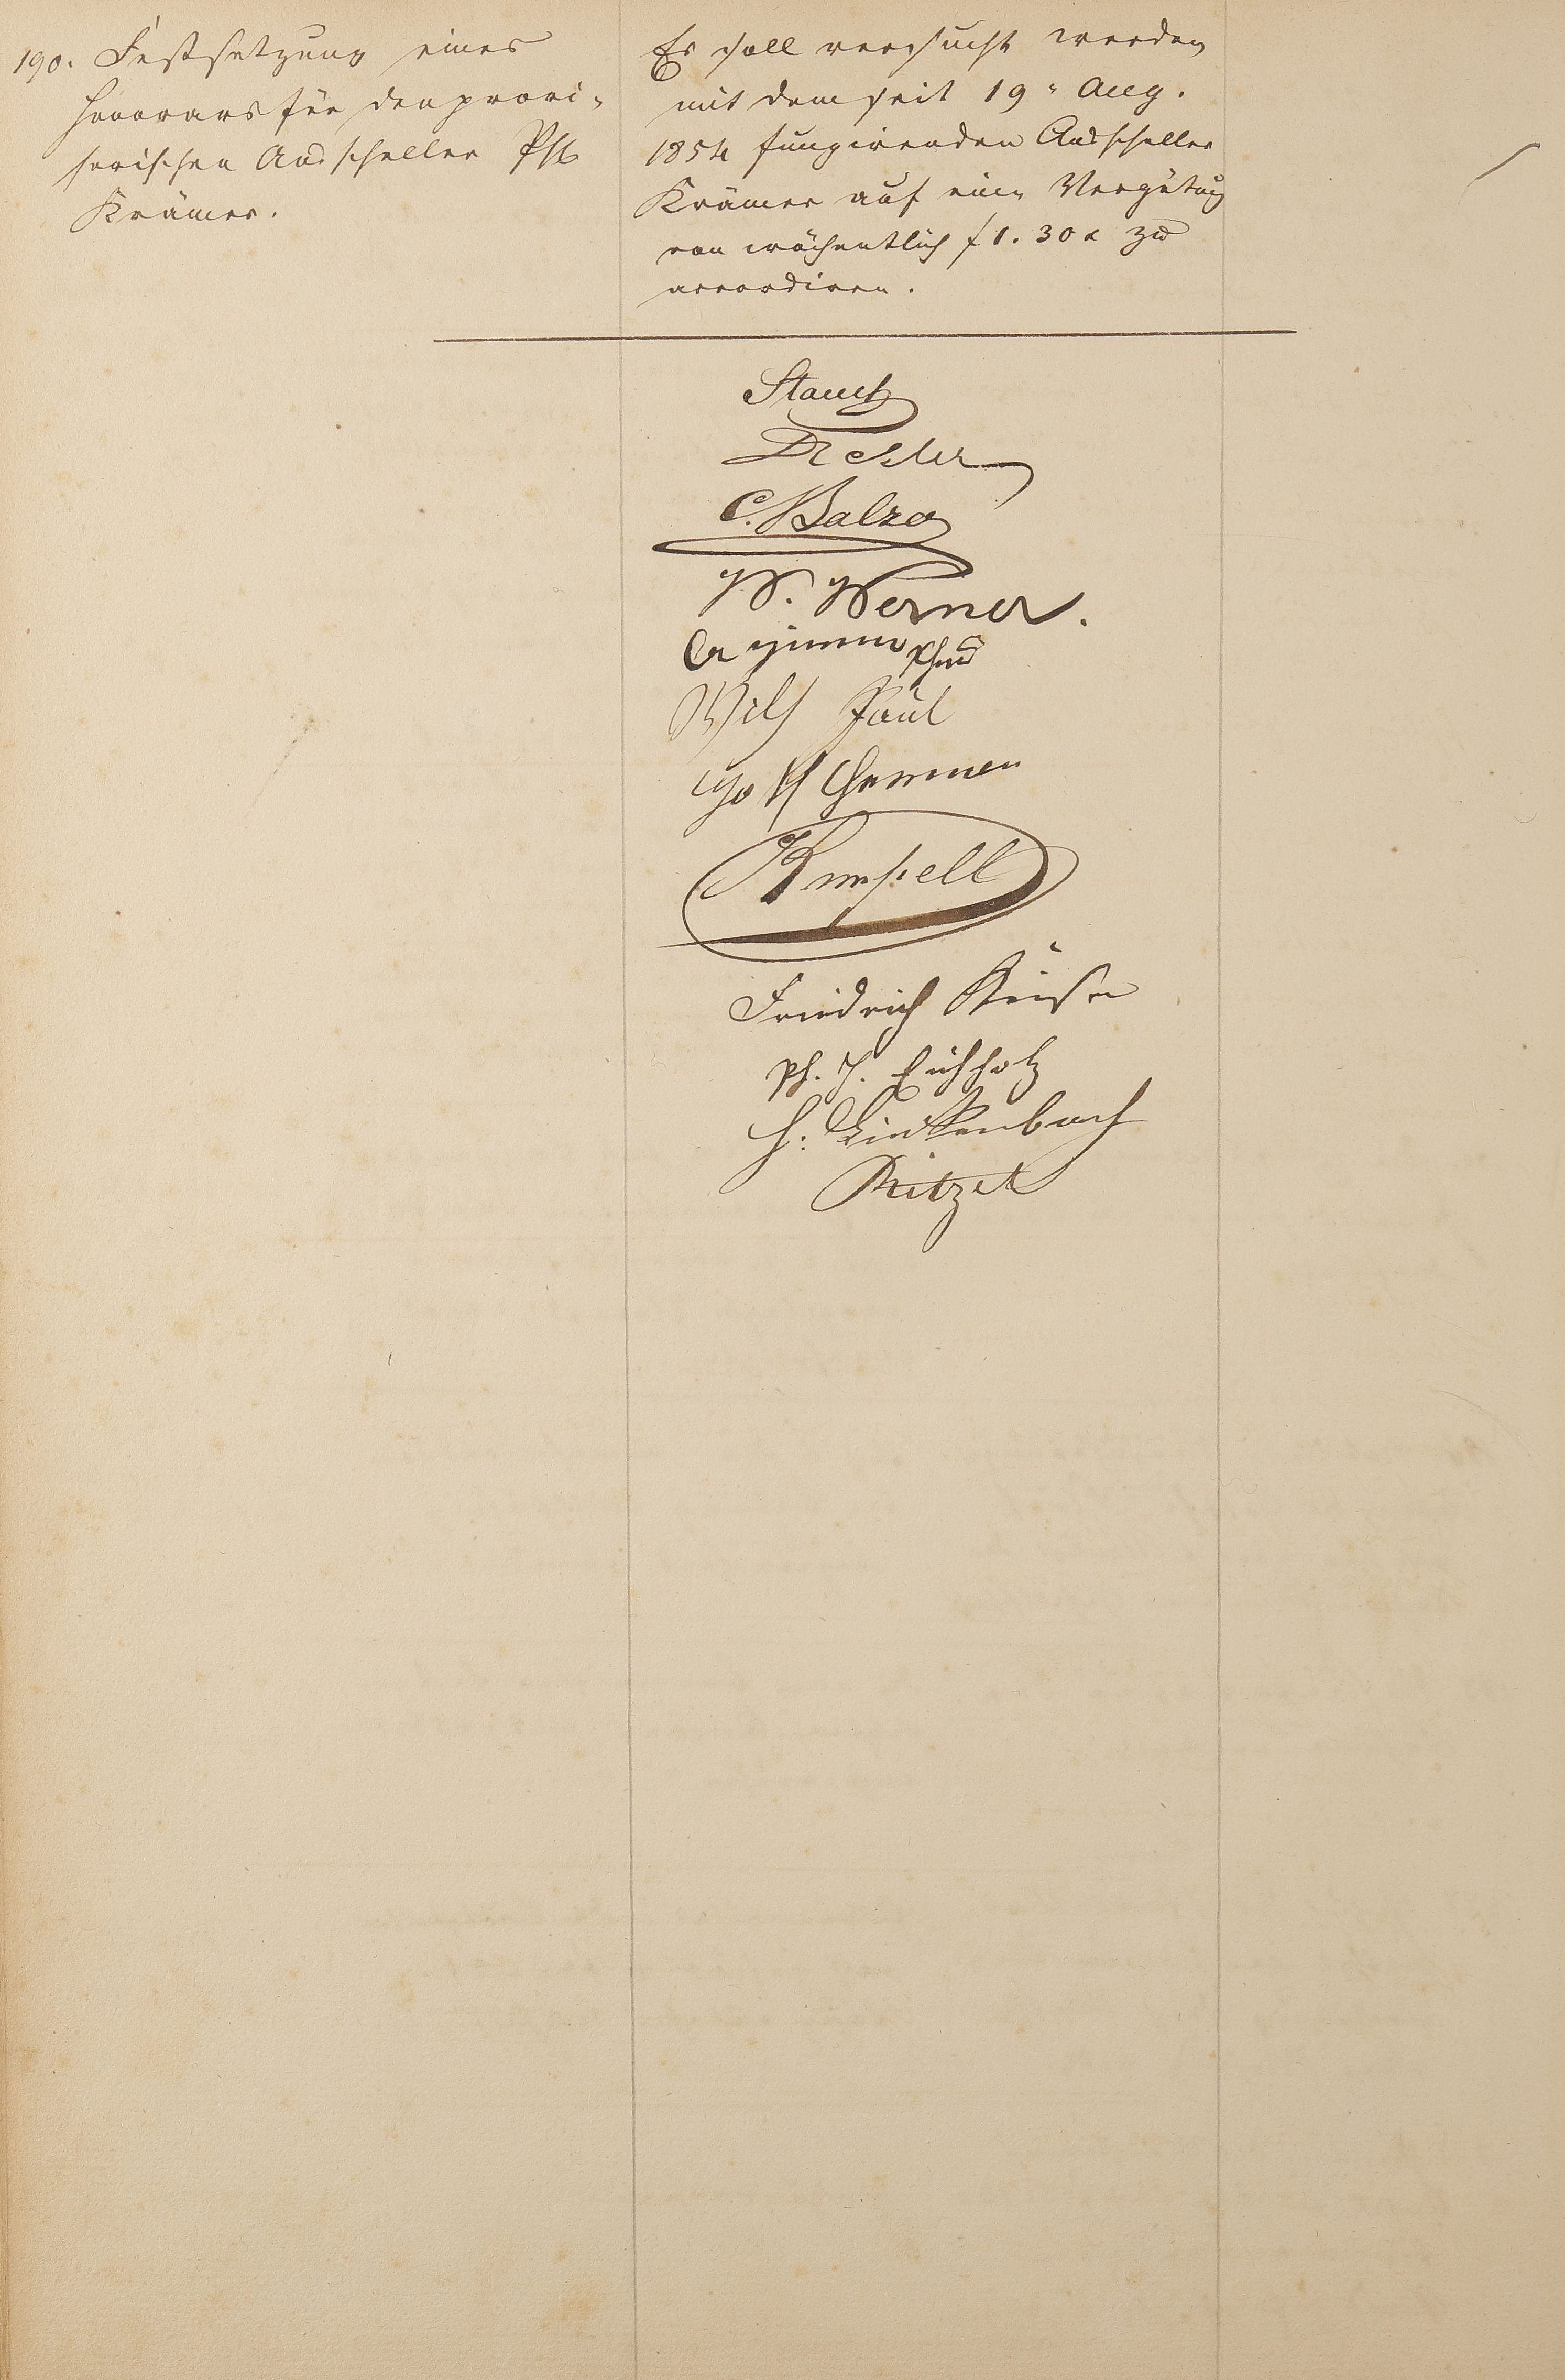 190. Festsetzung eines
Honorars für den provi-
sorischen Ausscheller Ph
Krämer.
Es soll versucht werden
mit dem seit 19. Aug.
1854 fungirenden Ausscheller
Krämer auf eine Vergütung
von wöchentlich f 1. 30 x zu
accordiren.
C. Balzer
W. Werner.
Wilh Paul
Rumpell
Friedrich
Ph. J. Eichholz
H. Linkenbach
Ritzel